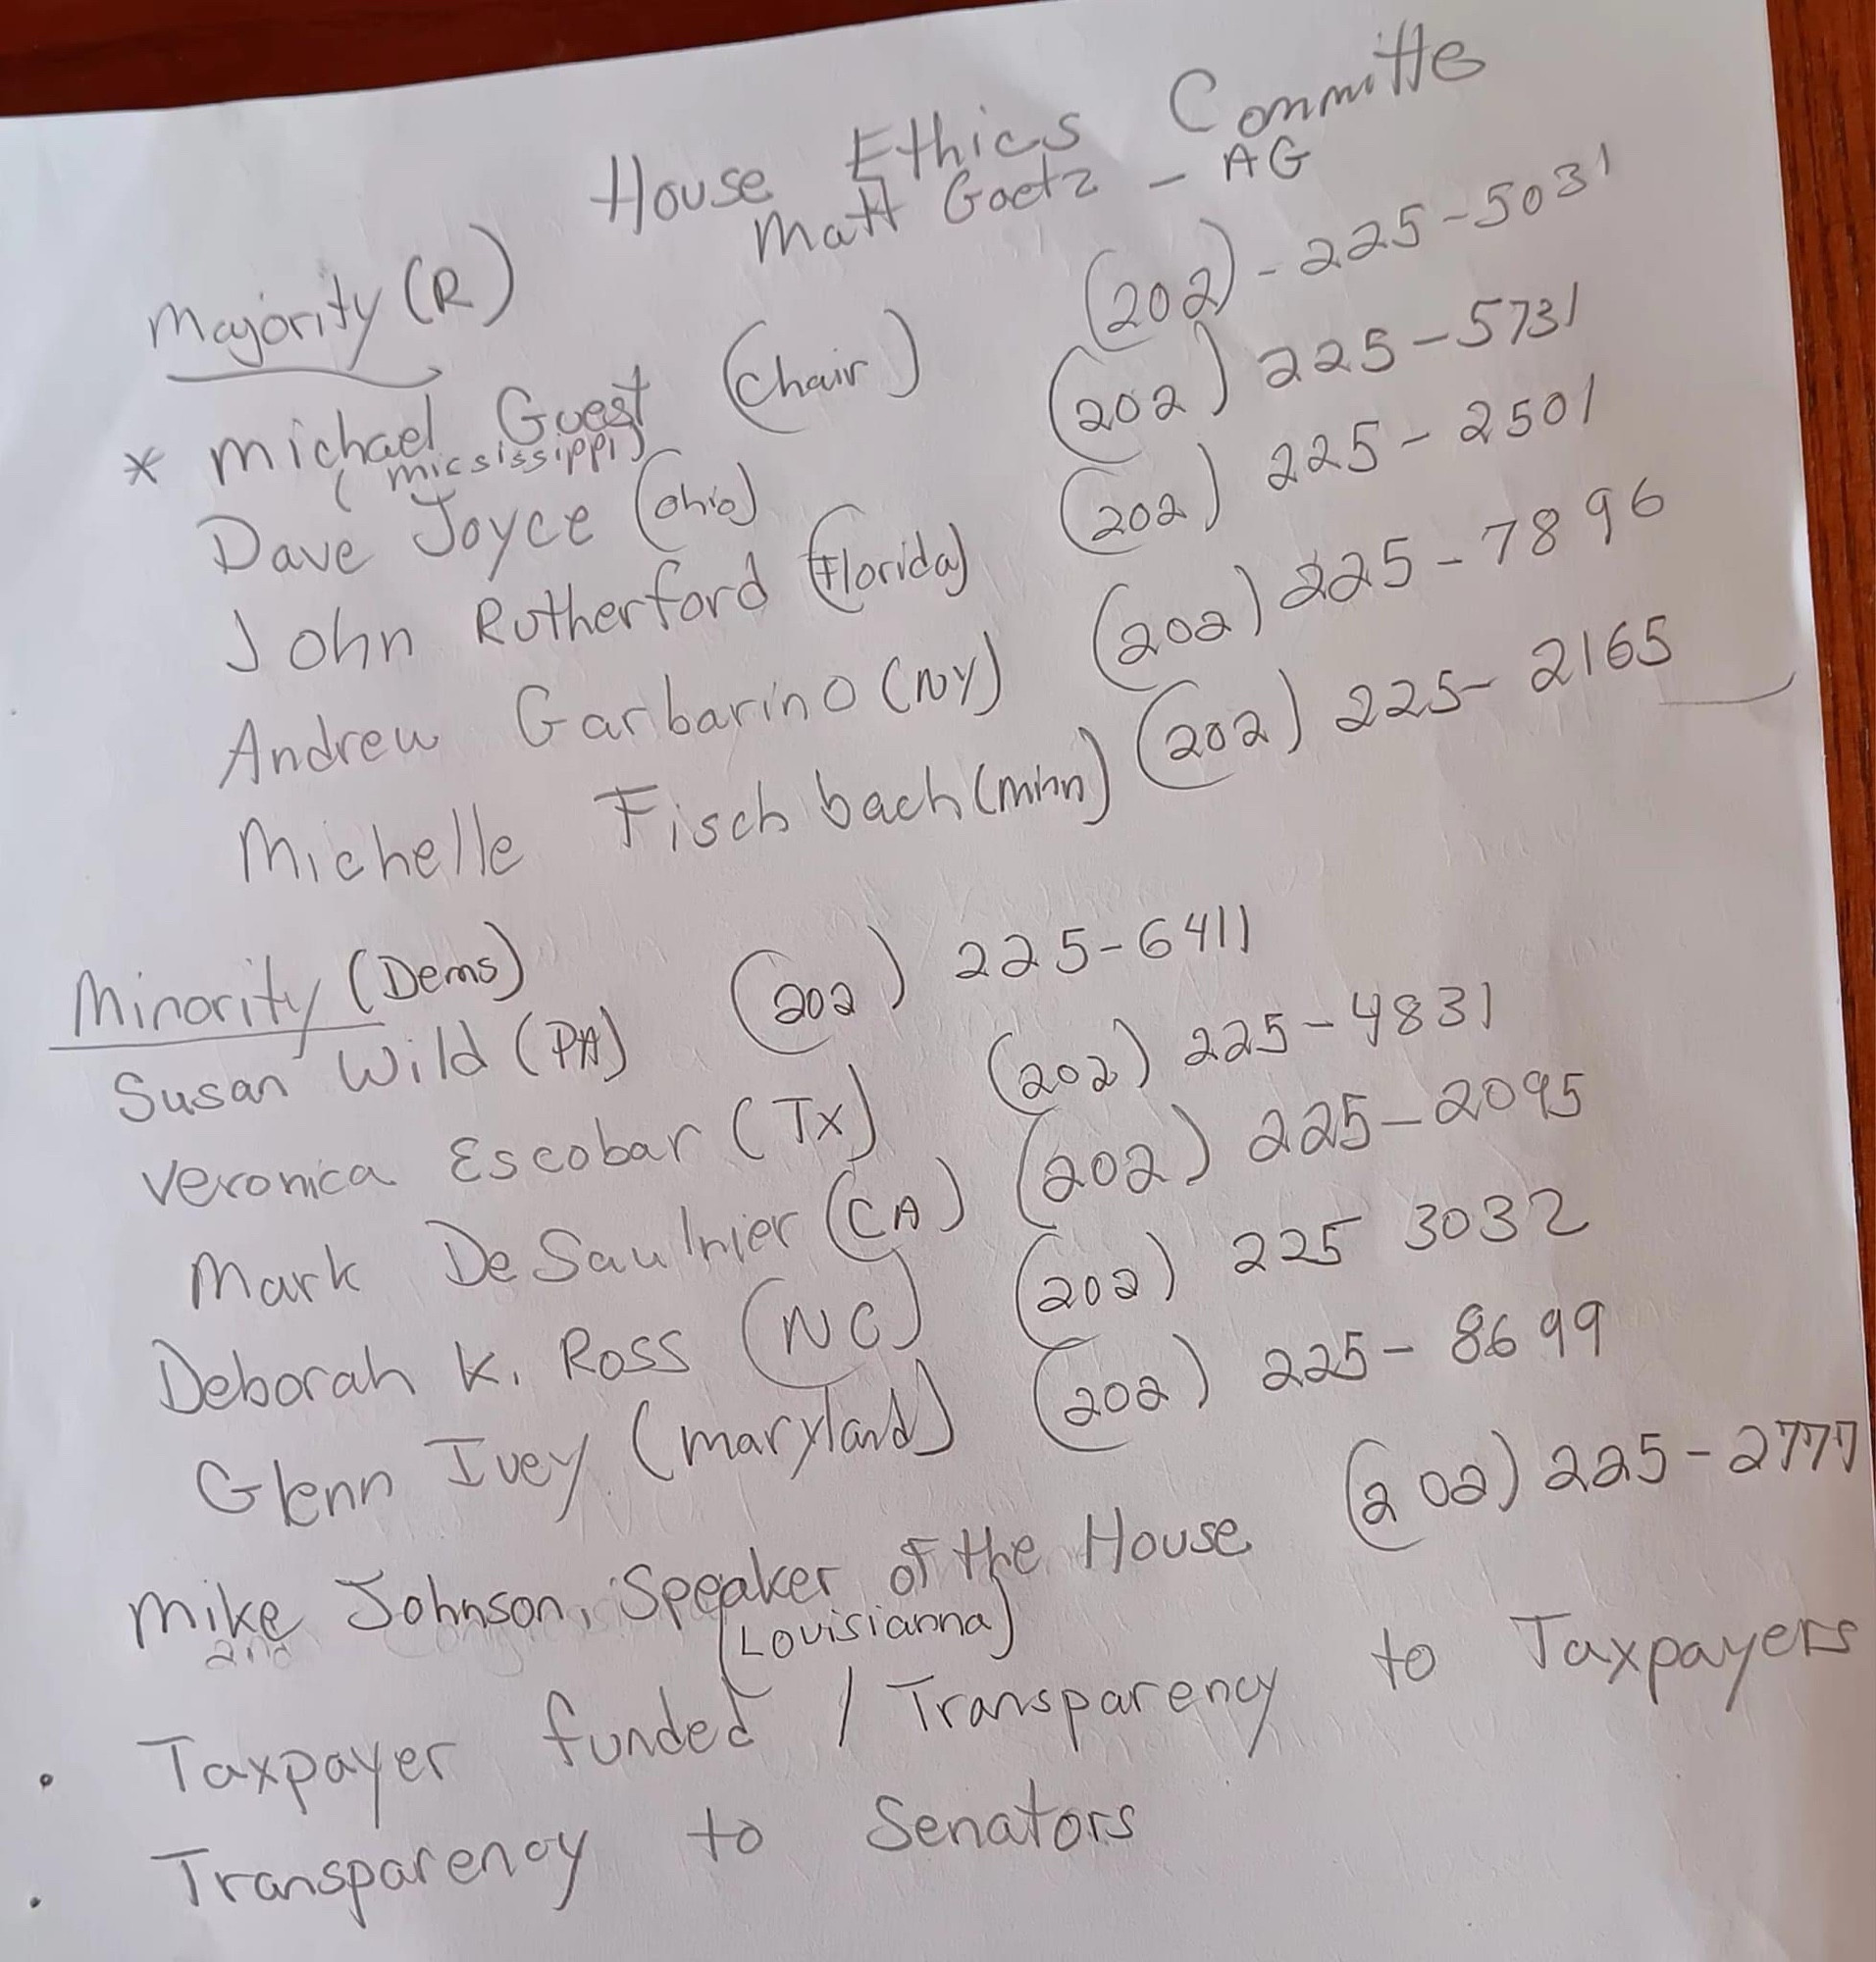 House Ethics Committe
Matt Gaetz - AG
Majority (R)
* Michael Guest (Chair) (202)-225-5031
(micsissippi)
Dave Joyce (Ohio) (202) 225-5731
John Rutherford (Florida) (202) 225-2501
Andrew Garbarino (NY) (202) 225-7896
Michelle Fischbach (Minn) (202) 225-2165
Minority (Dems)
Susan Wild (PA) (202) 225-6411
Veronica Escobar (TX) (202) 225-4831
Mark DeSaulnier (CA) (202) 225-2095
Deborah K. Ross (NC) (202) 225 3032
Glenn Ivey (Maryland) (202) 225-8699
Mike Johnson, Speaker of the House (202) 225-2777
and (Louisianna)
. Taxpayer funded / Transparency to Taxpayers
. Transparency to Senators